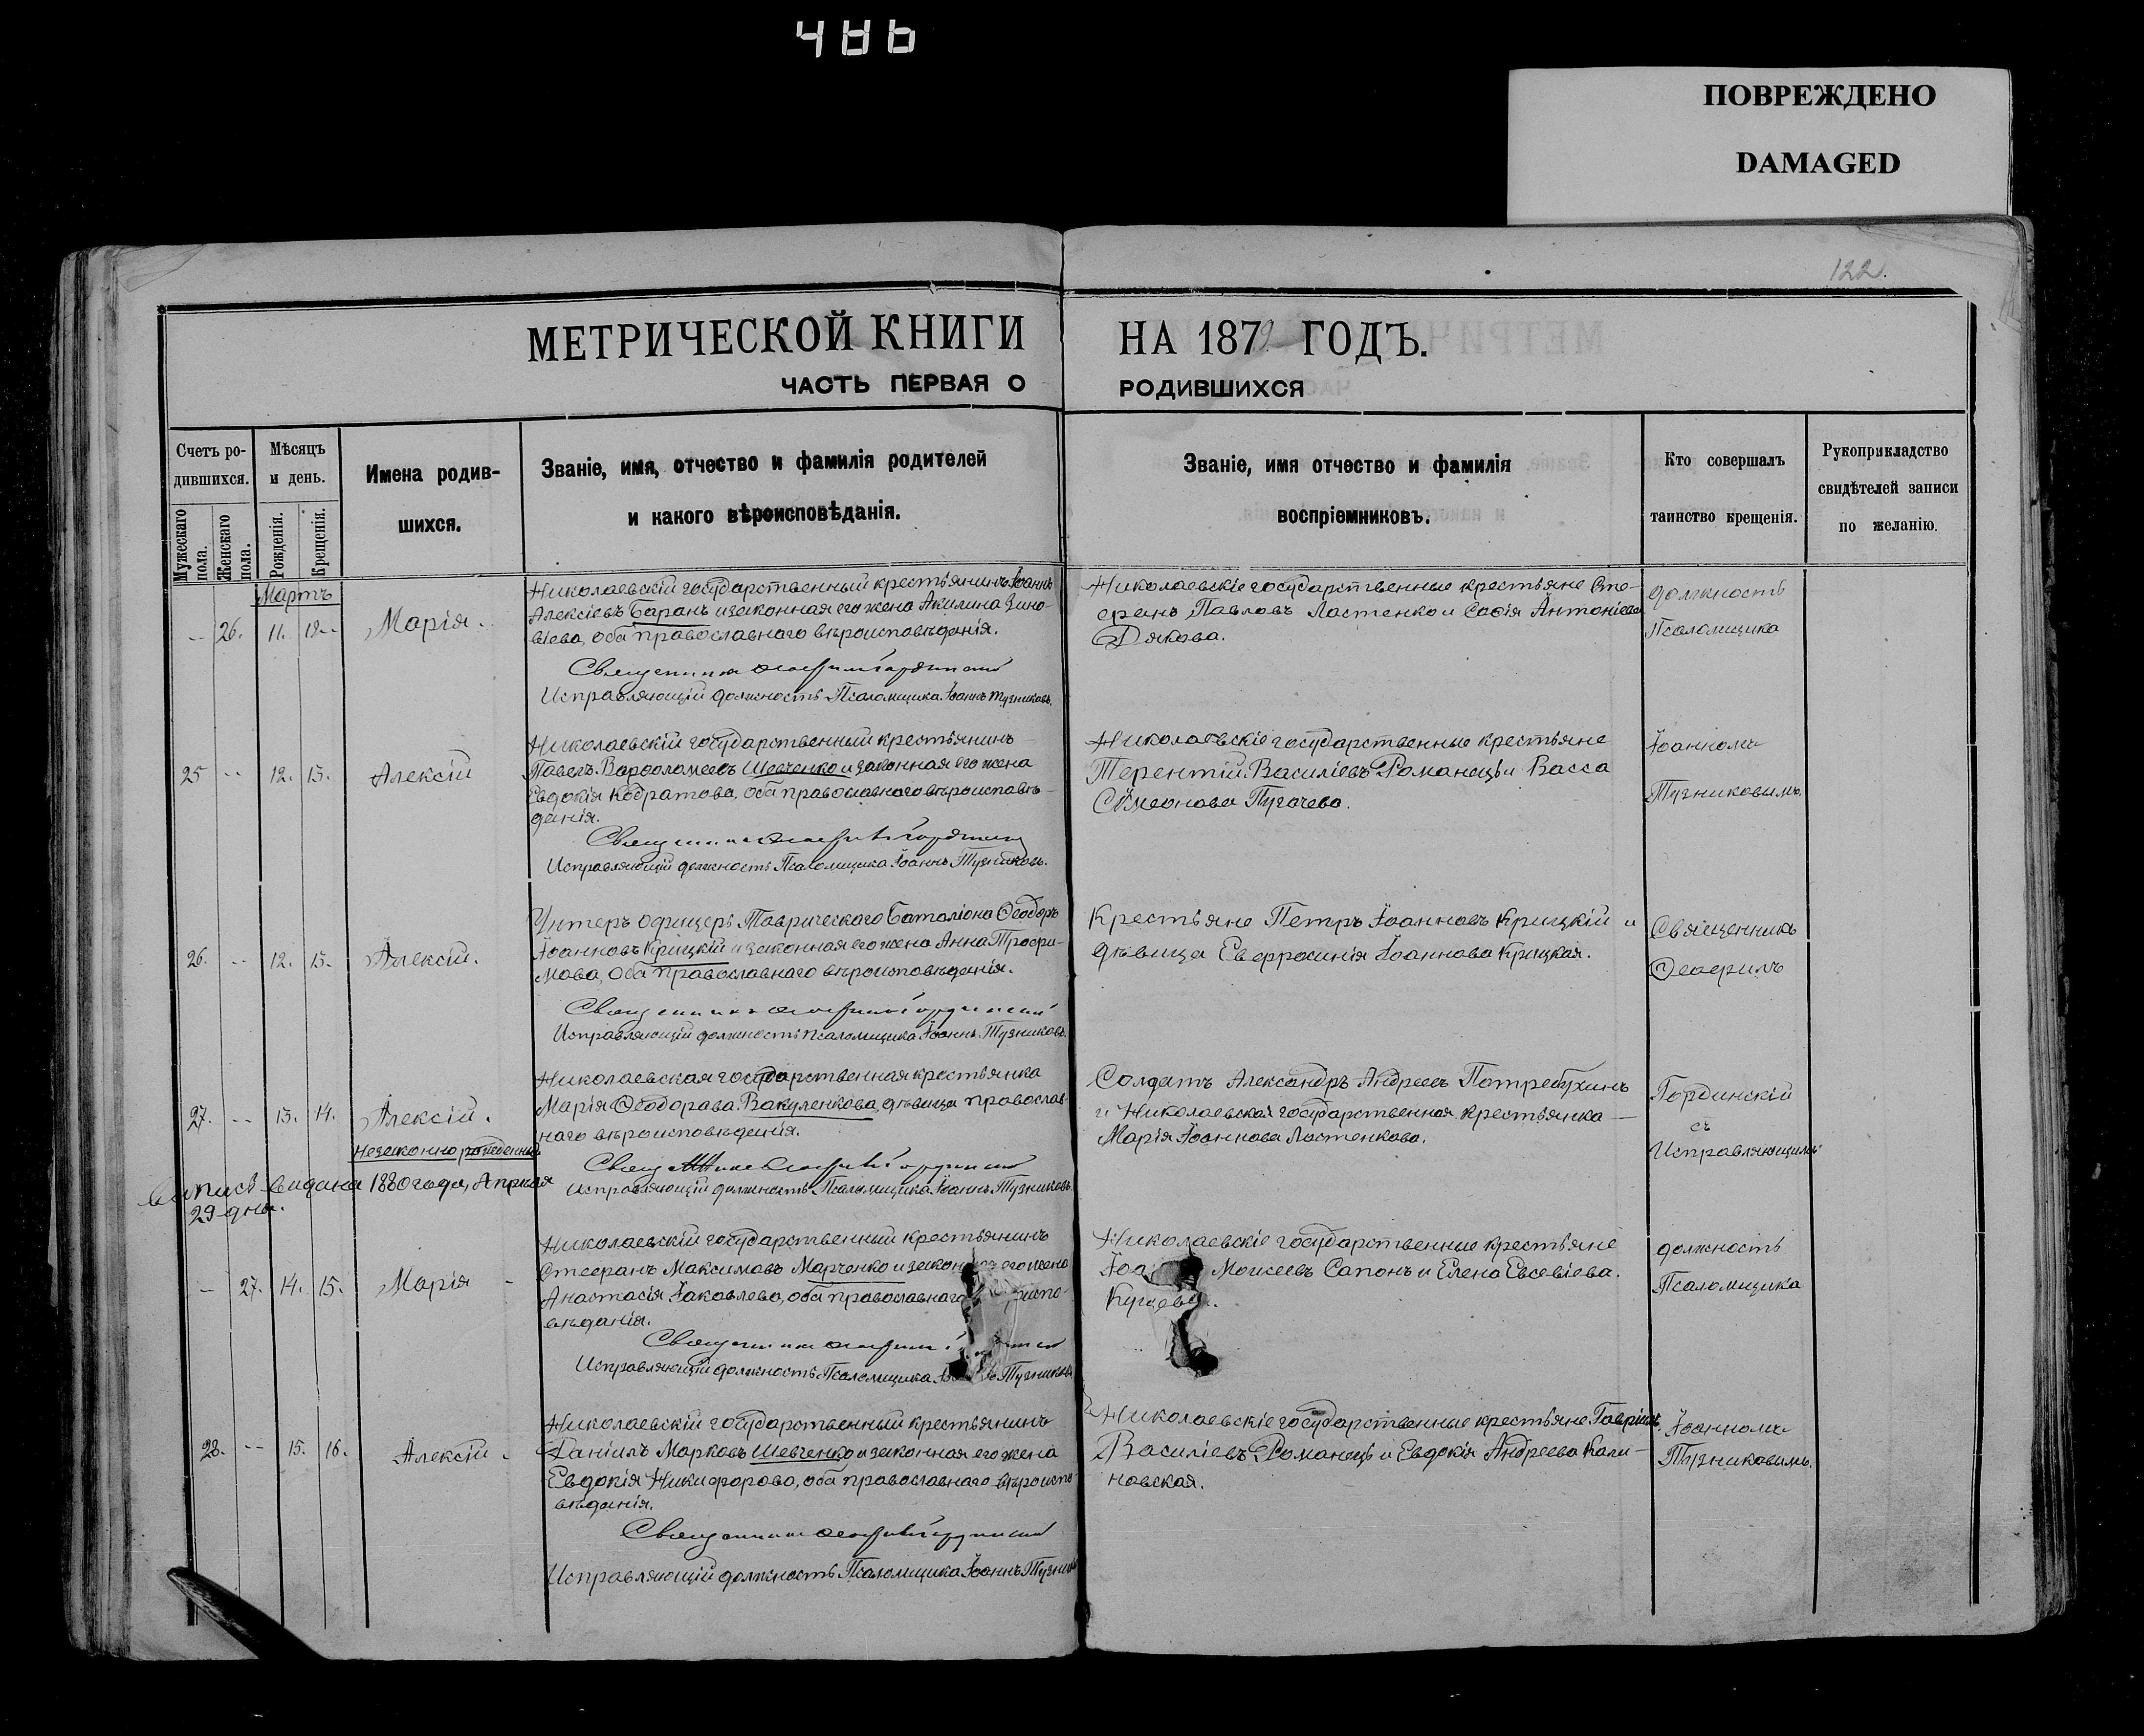 486
ПОВРЕЖДЕНО
DAMAGED
122.
МЕТРИЧЕСКОЙ КНИГИ НА 1879 ГОДЪ.
ЧАСТЬ ПЕРВАЯ О РОДИВШИХСЯ
Счетъ ро-
дившихся.
Мужескаго пола.
Женскаго пола.
Мѣсяцъ
и день.
Рожденія.
Крещенія.
Имена родив-
шихся.
Званіе, имя, отчество и фамилія родителей
и какого вѣроисповѣданія.
Званіе, имя отчество и фамилія
воспріемниковъ.
Кто совершалъ
таинство крещенія.
Рукоприкладство
свидѣтелей записи
по желанію.
Мартъ
-- 26. 11. 12-- Марія.
Николаевскій государственный крестьянинъ Іоаннъ
Алексіевъ Баранъ и законная его жена Акилина Зино-
віева, оба православнаго вѣроисповѣданія.
Священникъ Ѳеофилъ Гординскій
Исправляющій должность Псаломщика Іоаннъ Тузниковъ.
Николаевскіе государственные крестьяне Сте-
фанъ Павловъ Ластенко и Софія Антоніева
Дякова.
должность
Псаломщика
25 -- 12. 13. Алексій
Николаевскій государственный крестьянинъ
Павелъ Варфоломеевъ Шевченко и законная его жена
Евдокія Кодратова, оба православнаго вѣроисповѣ-
данія.
Священникъ Ѳеофилъ Гординскій
Исправляющій должность Псаломщика Іоаннъ Тузниковъ.
Николаевскіе государственные крестьяне
Терентій Василіевъ Романецъ и Васса
Симеонова Пугачева.
Іоанномъ
Тузниковымъ.
26. -- 12. 13. Алексій.
Унтеръ офицеръ Таврическаго Баталіона Ѳеодоръ
Іоанновъ Крицкій и законная его жена Анна Трофи-
мова, оба православнаго вѣроисповѣданія.
Священникъ Ѳеофилъ Гординскій
Исправляющій должность Псаломщика Іоаннъ Тузниковъ.
Крестьяне Петръ Іоанновъ Крицкій и
дѣвица Евфросинія Іоаннова Крицкая.
Священникъ
Ѳеофилъ
27. -- 13. 14. Алексій.
незаконно рожденный
Выпись выдана 1880 года, Апрѣля
29 дня.
Николаевская государственная крестьянка
Марія Ѳеодорава Вакуленкова, дѣвица православ-
наго вѣроисповѣданія.
Священникъ Ѳеофилъ Гординскій
Исправляющій должность Псаломщика Іоаннъ Тузниковъ.
Солдатъ Александръ Андреевъ Потребухинъ
и Николаевская государственная крестьянка
Марія Іоаннова Ластенкова.
Гординскій
съ
Исправляющимъ
-- 27. 14. 15. Марія
Николаевскій государственный крестьянинъ
Стефанъ Максимовъ Марченко и законная его жена
Анастасія Іаковлева, оба православнаго вѣроиспо-
вѣданія.
Священникъ Ѳеофилъ
Исправляющій должность Псаломщика Тузниковъ
Николаевскіе государственные крестьяне
Моисеевъ Сапонъ и Елена Евсевіева.
должность
Псаломщика
28. -- 15. 16. Алексій.
Николаевскій государственный крестьянинъ
Даніилъ Марковъ Шевченко и законная его жена
Евдокія Никифорова, оба православнаго вѣроиспо-
вѣданія.
Священникъ Ѳеофилъ Гординскій
Исправляющій должность Псаломщика Іоаннъ Тузник
Николаевскіе государственные крестьяне Гавріилъ
Василіевъ Романецъ и Евдокія Андреева Кали-
новская.
Іоанномъ
Тузниковымъ.